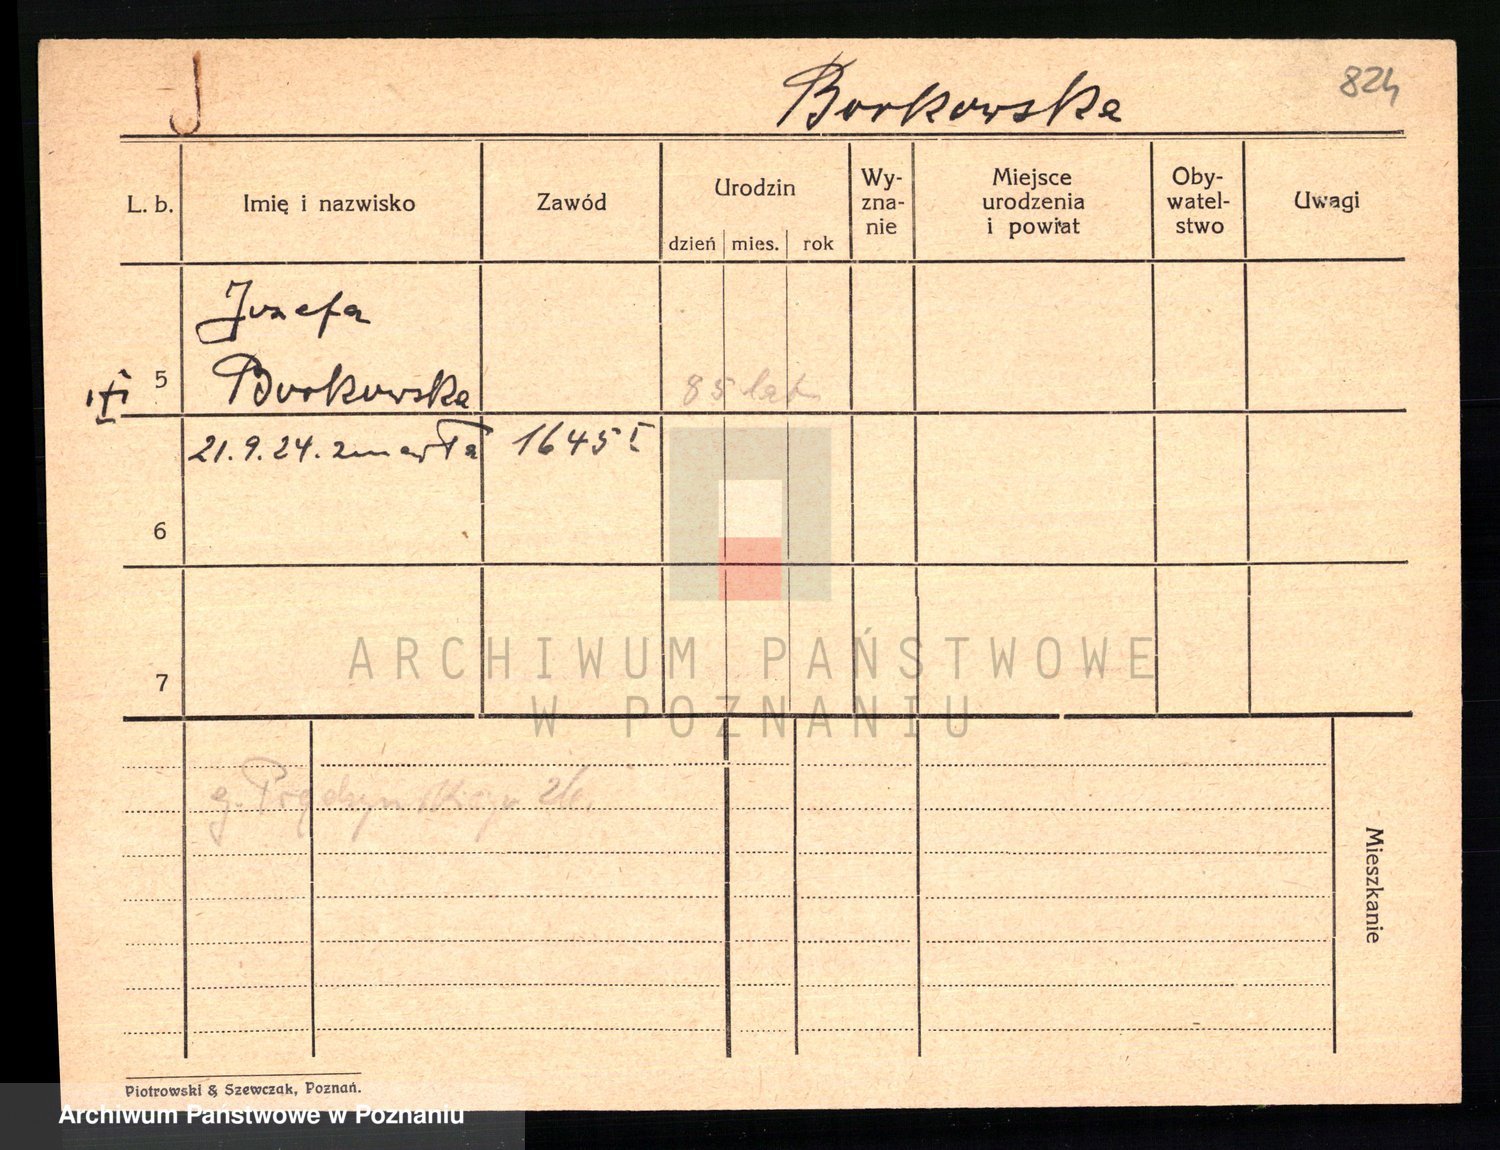 J
Borkowska
824
L. b.
Imię i nazwisko
Zawód
Urodzin
dzień mies. rok
Wy-
zna-
nie
Miejsce
urodzenia
i powiat
Oby-
watel-
stwo
Uwagi
Józefa
5 Borkowska
85 lat
21.9.24. zmarła 1645 I
6
ARCHIWUM PAŃSTWOWE
W POZNANIU
7
g. Prądzyńskiego 26.
Mieszkanie
Piotrowski & Szewczak, Poznań.
Archiwum Państwowe w Poznaniu